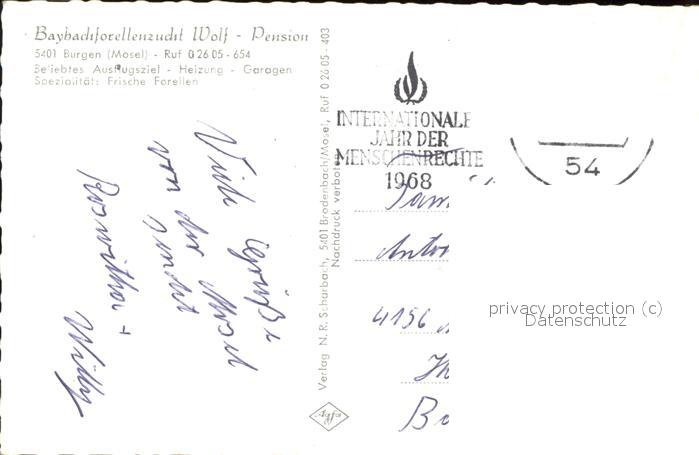 Baybachforellenzucht Wolf - Pension
5401 Burgen (Mosel) - Ruf 0 26 05 - 654
Beliebtes Ausflugsziel - Heizung - Garagen
Spezialität: Frische Forellen
Viele Grüße
von der Mosel
sendet
Roswitha +
Willy
Verlag N. R. Scharbach, 5401 Brodenbach/Mosel, Ruf 0 26 05 - 403
Nachdruck verboten
Agfa
INTERNATIONALE
JAHR DER
MENSCHENRECHTE
1968
54
Fam
Anto
4156
Br
privacy protection (c)
Datenschutz